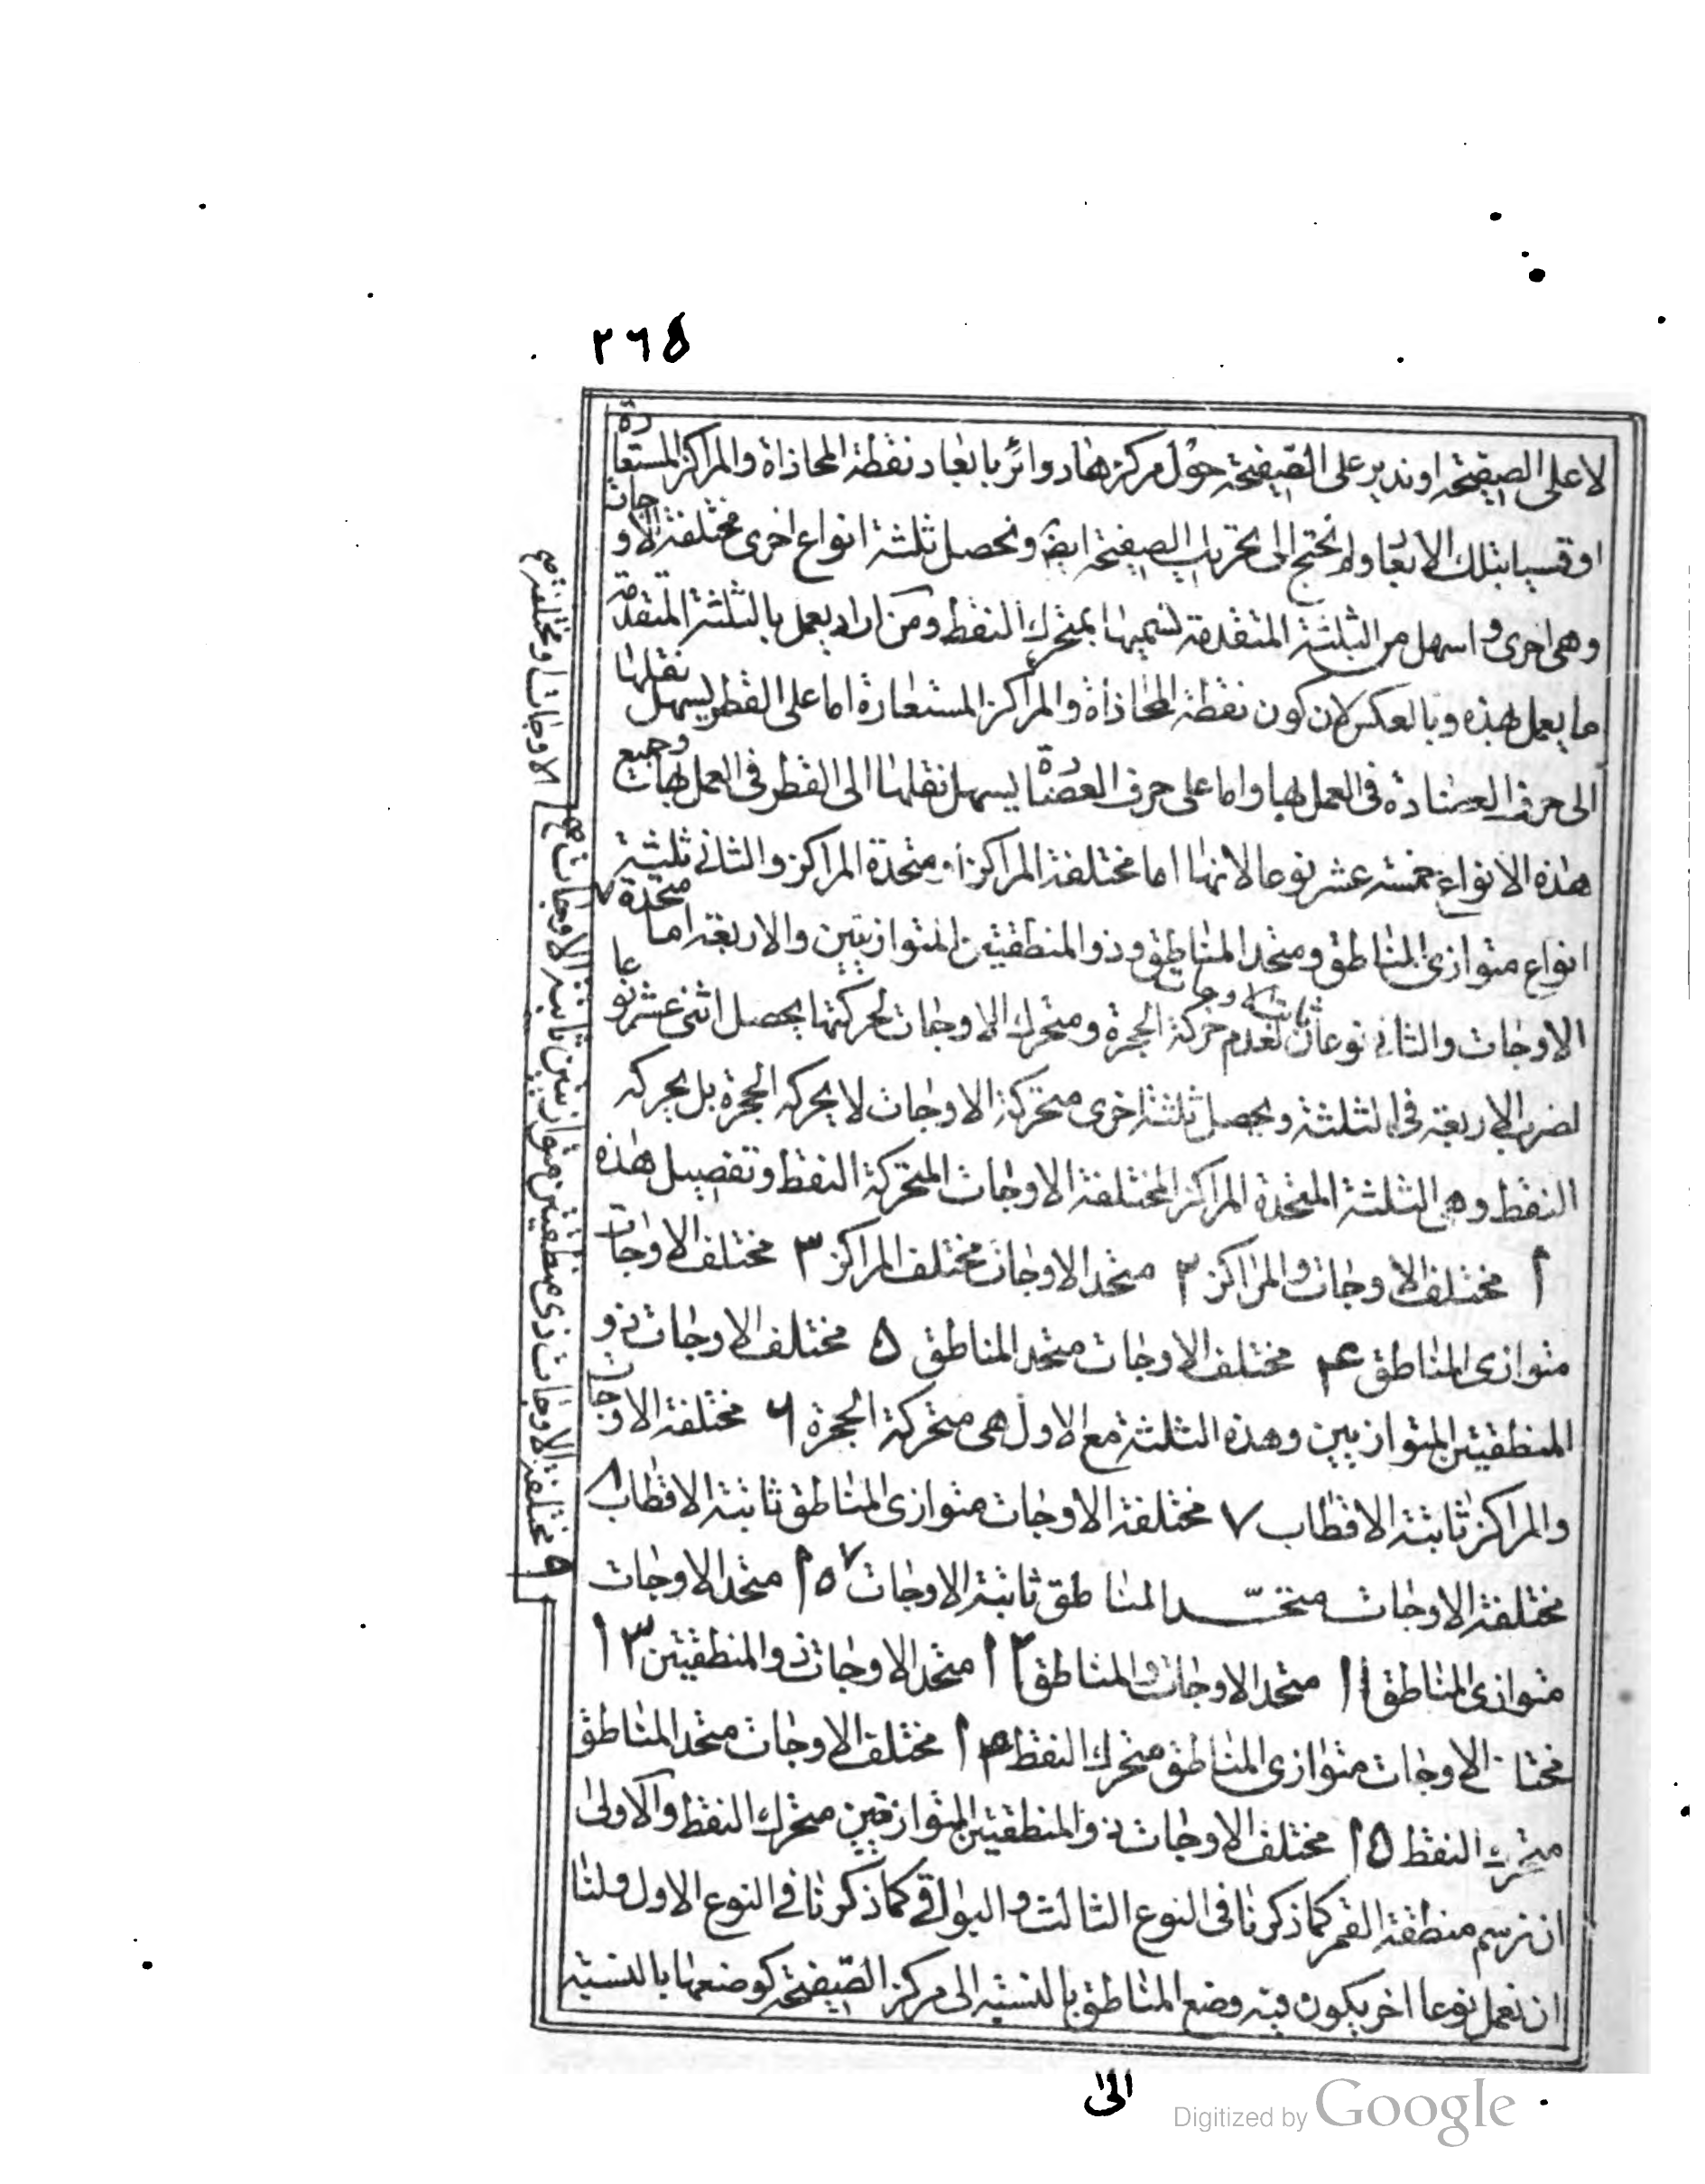 ٢٦٥
لا على الصفيحة او ندير على الصفيحة حول مركزها دوائر بابعاد نقطة المحاذاة والمراكز المستعارة
او قسيا بتلك الابعاد ولم نحتج الى تخريب الصفيحة ايضا ونحصل ثلثة انواع اخرى مختلفة الاوجات
وهى اخرى و اسهل من الثلثة المتقدمة نسميها بمتحرك النقط ومن اراد يعمل بالثلثة المتقدمة
ما يعمل بهذه وبالعكس لان كون نقطة المحاذاة والمراكز المستعارة اما على القطر ليسهل نقلها
الى حرف العضادة فى العمل بها واما على حرف العضادة ليسهل نقلها الى القطر فى العمل بها وجميع
هذه الانواع خمسة عشر نوعا لانها اما مختلفة المراكز او متحدة المراكز والثانى ثلثة
انواع متوازى المناطق ومتحد المناطق وذو المنطقتين المتوازيتين والاربعة اما متحدة
الاوجات والثانى نوعان ثابت الاوجات لعدم حركة الحجرة ومتحرك الاوجات لحركتها يحصل اثنى عشر نوعا
لضرب الاربعة فى الثلثة ويحصل ثلثة اخرى متحركة الاوجات لا بحركة الحجرة بل بحركة
النقط وهى الثلثة المتحدة المراكز المختلفة الاوجات المتحركة النقط وتفصيل هذه
١ مختلف الاوجات والمراكز ٢ متحد الاوجات مختلف المراكز ٣ مختلف الاوجات
متوازى المناطق ۴ مختلف الاوجات متحد المناطق ٥ مختلف الاوجات ذو
المنطقتين المتوازيتين وهذه الثلثة مع الاول هى متحركة الحجرة ٦ مختلفة الاوجات
والمراكز ثابتة الاقطاب ٧ مختلفة الاوجات متوازى المناطق ثابتة الاقطاب ٨
مختلفة الاوجات متحد المناطق ثابتة الاوجات ٧ ١٥ متحد الاوجات
متوازى المناطق ١١ متحد الاوجات والمناطق ١٢ متحد الاوجات ذو المنطقتين ١٣
الاوجات متوازى المناطق متحرك النقط ١۴ مختلف الاوجات متحد المناطق
متحرك النقط ١٥ مختلف الاوجات ذو المنطقتين المتوازيتين متحرك النقط والاولى
ان نرسم منطقة القمر كما ذكرنا فى النوع الثالث والبواقى كما ذكرنا فى النوع الاول ولنا
ان نعمل نوعا اخر يكون فيه وضع المناطق بالنسبة الى مركز الصفيحة كوضعها بالنسبة
الى
٩ مختلفة الاوجات ذى منطقتين متوازيتين ثابتة الاوجات صح
الاوجات او مختلفة صح
Digitized by Google